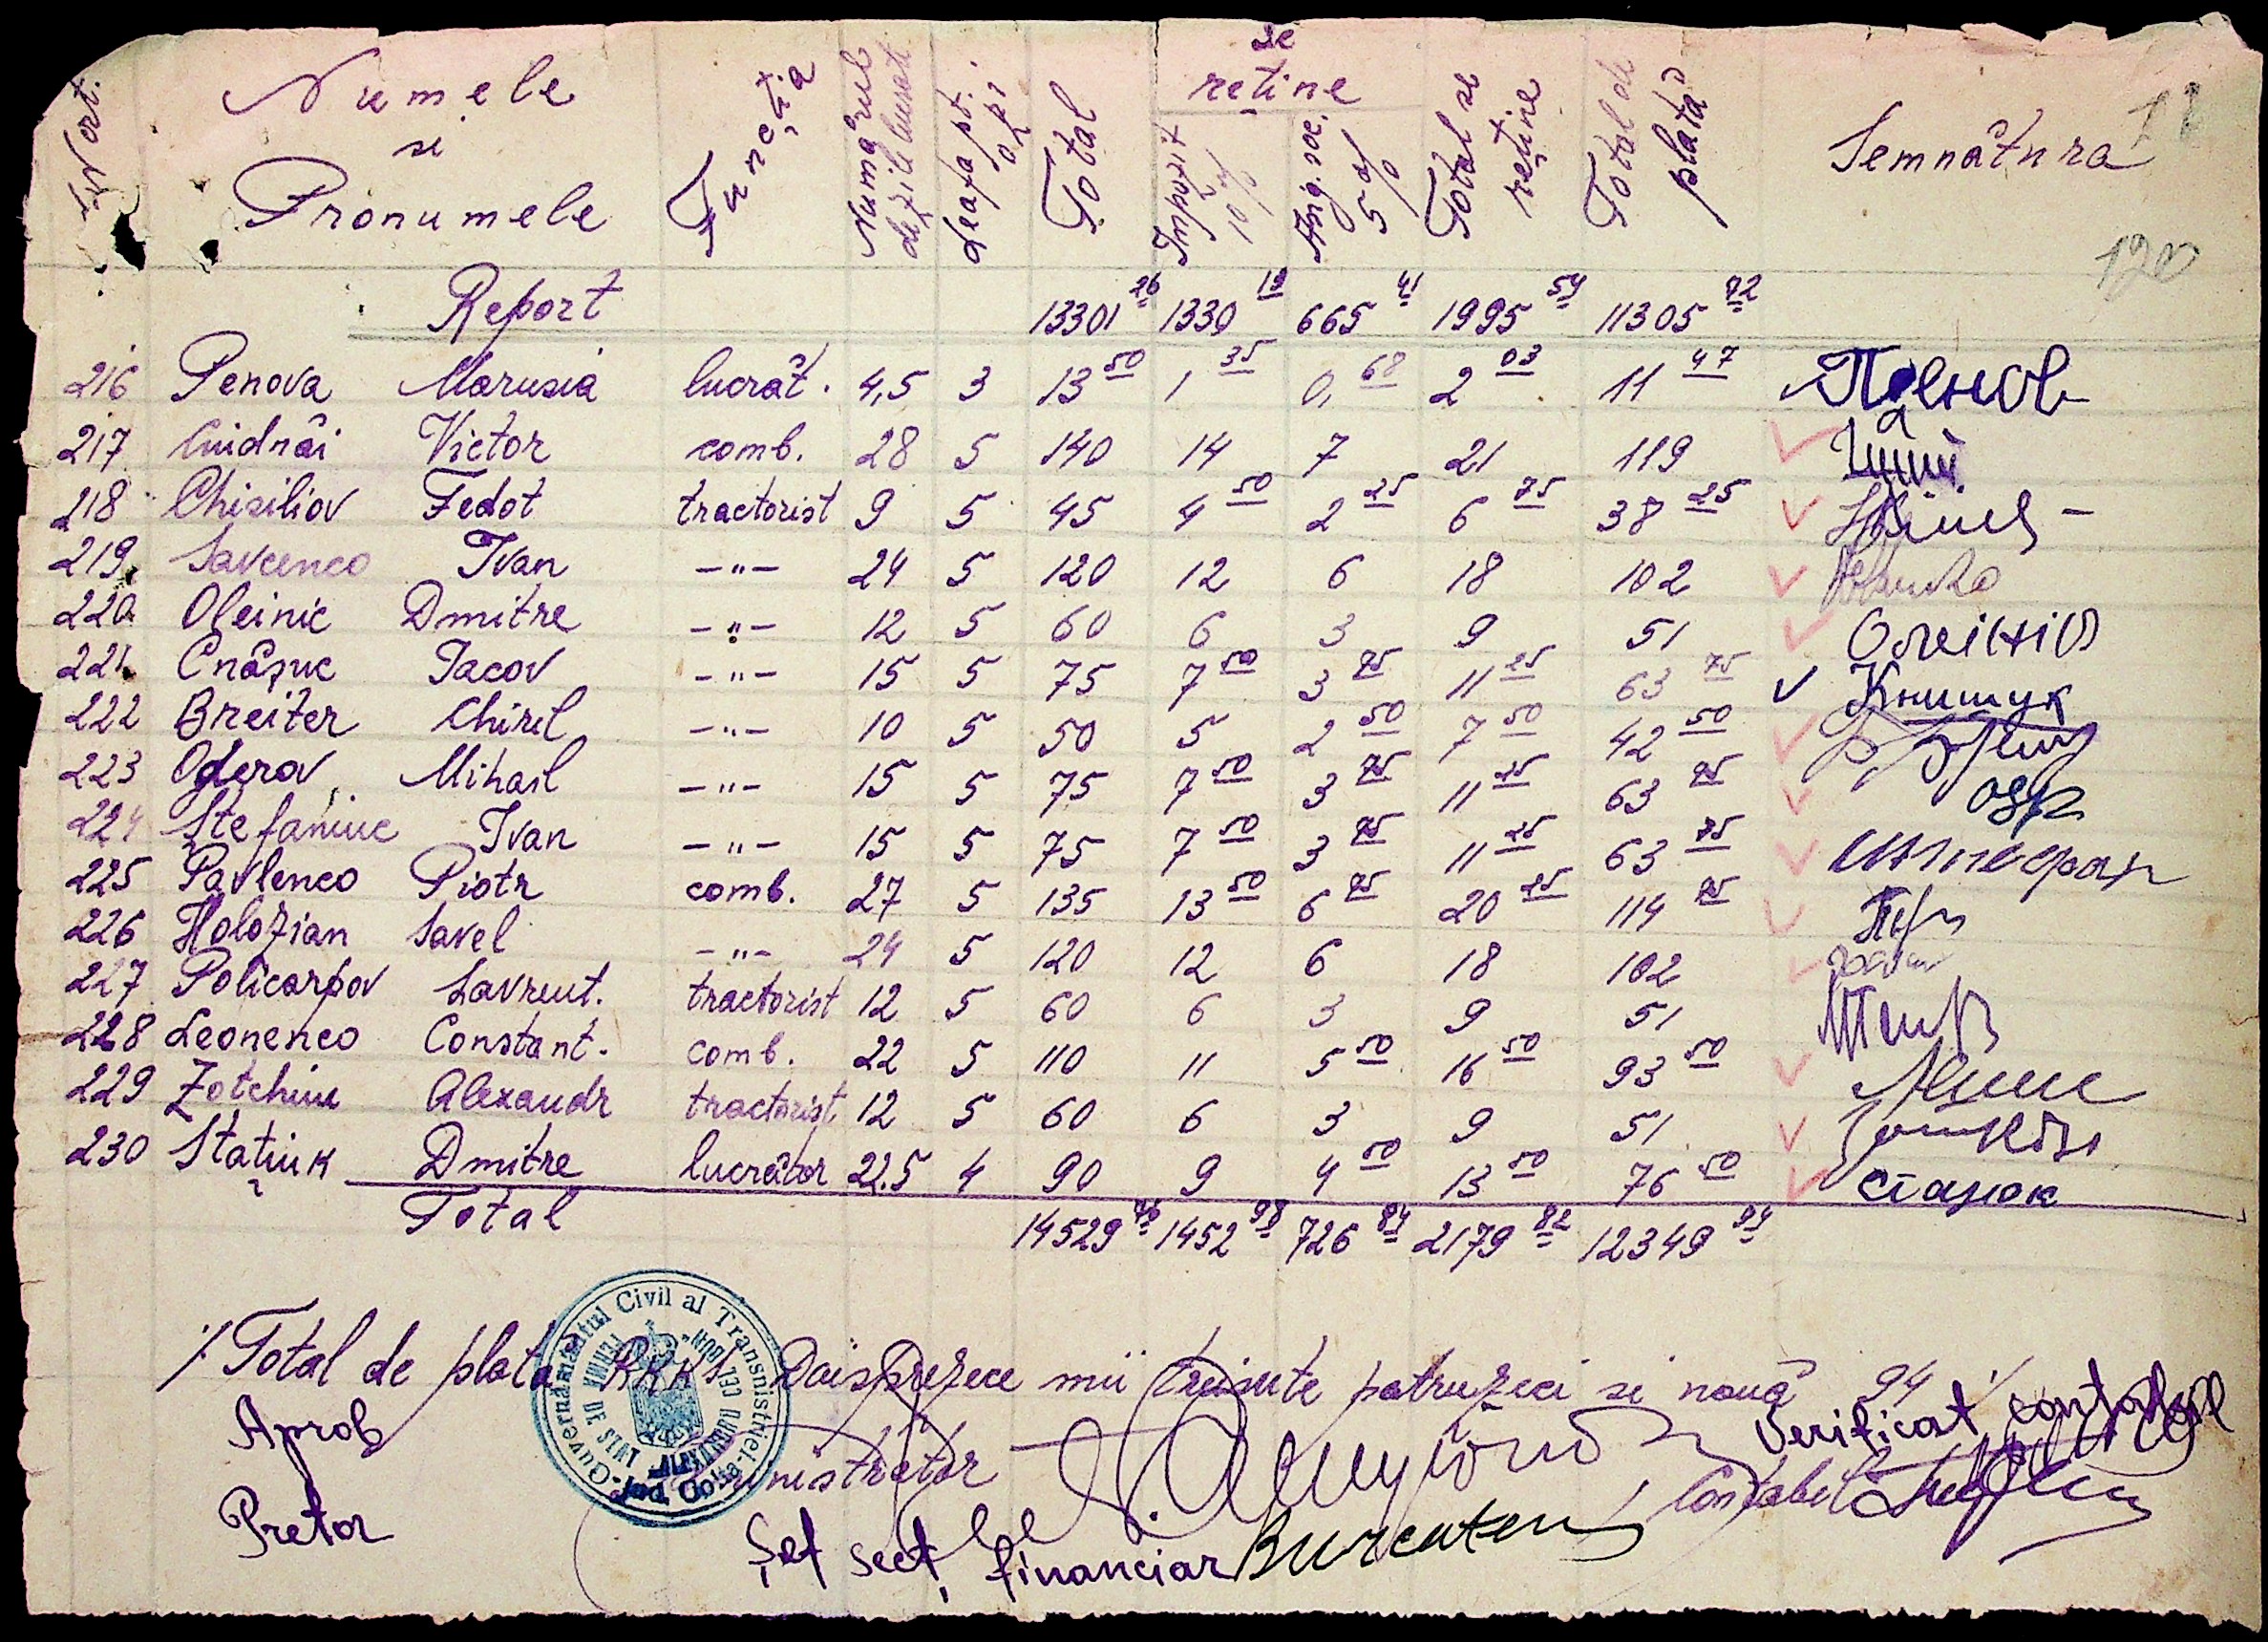 № ort.
Numele
si
Pronumele
Funcția
Numărul de zile lucrat
Leafa pt. o zi
Total
se
retine
Impozit 10%
Asig. soc. 5%
Total se retine
Total de plată
Semnătura
120
Report 13301 26 1330 13 665 41 1995 54 11305 72
216 Penova Marusia lucrăt. 4,5 3 13 50 1 35 0, 68 2 03 11 47 Пенова
217 Victor comb. 28 5 140 14 7 21 119
218 Chisiliov Fedot tractorist 9 5 45 4 50 2 25 6 75 38 25
219 Savcenco Ivan -"- 24 5 120 12 6 18 102
220 Oleinic Dmitre -"- 12 5 60 6 3 9 51 Олеiнiв
221 Cnâșuc Iacov -"- 15 5 75 7 50 3 75 11 25 63 75 Книшук
222 Breiter Chiril -"- 10 5 50 5 2 50 7 50 42 50
223 Oderov Mihail -"- 15 5 75 7 50 3 75 11 25 63 75
224 Ștefaniuc Ivan -"- 15 5 75 7 50 3 75 11 25 63 75
225 Pavlenco Piotr comb. 27 5 135 13 50 6 75 20 25 114 75
226 Holozian Savel -"- 24 5 120 12 6 18 102
227 Policarpov Lavrent. tractorist 12 5 60 6 3 9 51
228 Leonenco Constant. comb. 22 5 110 11 5 50 16 50 93 50
229 Zotchin Alexandr tractorist 12 5 60 6 3 9 51
230 Stațiuk Dmitre lucrător 22.5 4 90 9 4 50 13 50 76 50
Total 14529 76 1452 98 726 84 2179 82 12349 94
Guvernământul Civil al Transnistriei
/. Total de plata RKKS Doisprezece mii treisute patruzeci si nouă 94 /
Aprob
Verificat contabil
Administrator
Contabil
Pretor
Șef secț. financiar